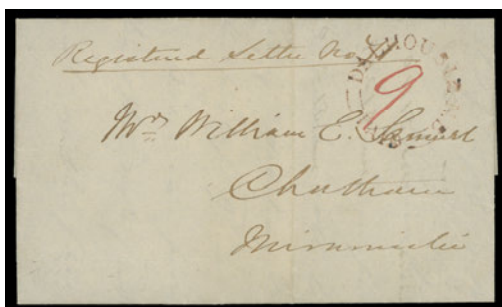 Registered Letter No
DALHOUSIE N.B.
9
Mr William E. Samuel
Chatham
Miramichi